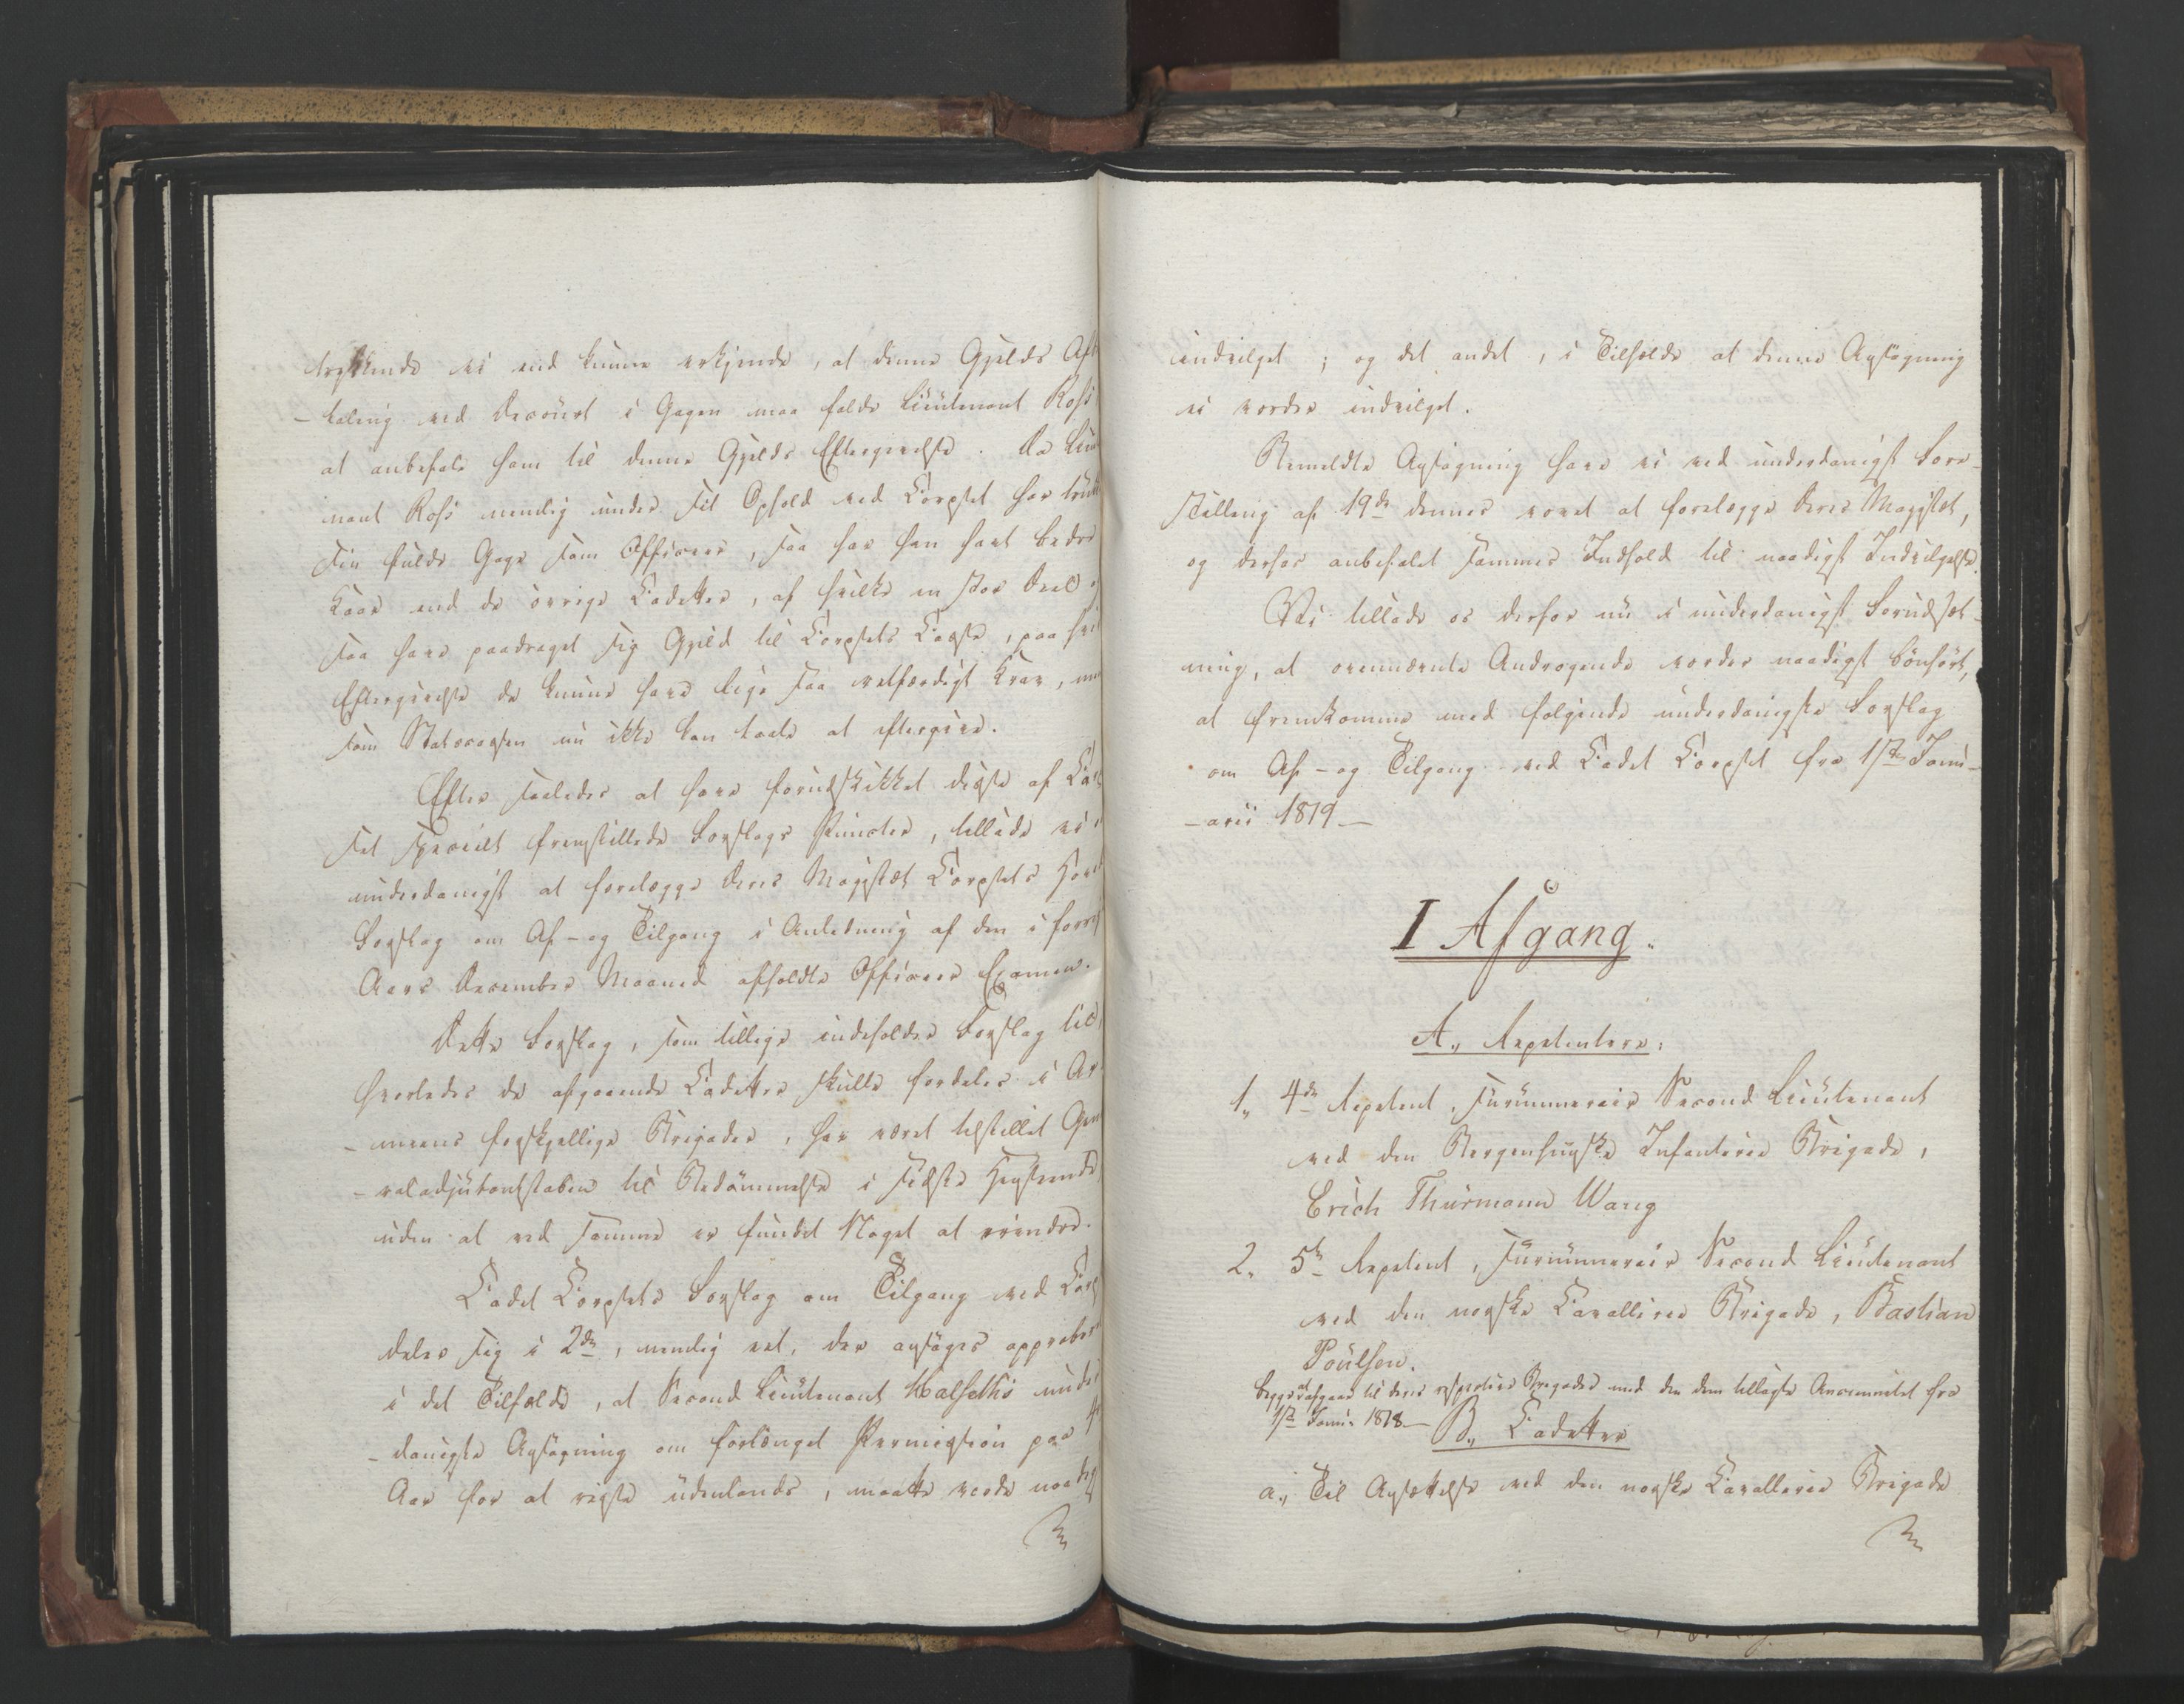 trykkende vi end kunne erkjende, at denne Gjelds Af
-taling ved Decourt i Gagen maa falde Lieutenant Ross
at anbefale ham til denne Gjelds Eftergivelse. Da Lieu
nant Ross nemlig under sit Ophold ved Corpset har
sin fulde Gage som Officeer, saa har han havt bedre
Kaar end de øvrige Cadetter, af hvilke en stor Deel
saa have paadraget sig Gjeld til Corpsets Casse, paa
Eftergivelse de kunne have lige saa retfærdigt Krav, men
som Statscassen nu ikke kan taale at eftergive.
Efter saaledes at have forudskikket disse af
set specielt fremstillede Forslags Puncter, tillade vi
underdanigst at forelægge Deres Majestæt Corpsets
Forslag om Af- og Tilgang i Anledning af den i
Aars December Maaned afholdte Officeer Examen.
Dette Forslag, som tillige indeholder Forslag til
hvorledes de afgaaende Cadetter skulle fordeles i Ar
-meens forskjellige Brigader, har været tilstillet Gene
-raladjutantstaben til Bedømmelse i sidste Henseende
uden at ved samme er fundet Noget at erindre.
Cadet Corpsets Forslag om Tilgang ved Corps
deler sig i 2de, nemlig eet, der ansøges approberet
i det Tilfælde, at Second Lieutenant Kalseths under
-danigste Ansøgning om forlænget Permission paa
Aar for at reise udenlands, maatte vorde naadigst
indvilget; og det andet, i Tilfælde at denne Ansøgning
ei vorder indvilget.
Bemeldte Ansøgning have vi ved underdanigst Fore-
stilling af 19de dennes været at forelægge Deres Majestæt,
og derfor anbefalet sammes Indhold til naadigst Indvilgelse.
Vi tillade os derfor nu i underdanigst Forudsæt-
ning, at ovennævnte Andragende vorder naadigst bønhørt,
at fremkomme med følgende underdanigste Forslag
om Af- og Tilgang ved Cadet Corpset fra 1ste Janu-
-arii 1819
I Afgang.
A., Repetentere:
1., 4de Repetent, surnumerair Second Lieutenant
ved den Bergenhuusske Infanterie Brigade,
Erich Thurmann Wang
2., 5te Repetent, surnumerair Second Lieutenant
ved den norske Cavallerie Brigade, Bastian
Poulsen.
begge at afgaae til deres respective Brigader med den dem tillagte Anciennitet fra
1ste Janu: 1818
B., Cadetter
a., Til Ansættelse ved den norske Cavallerie Brigade